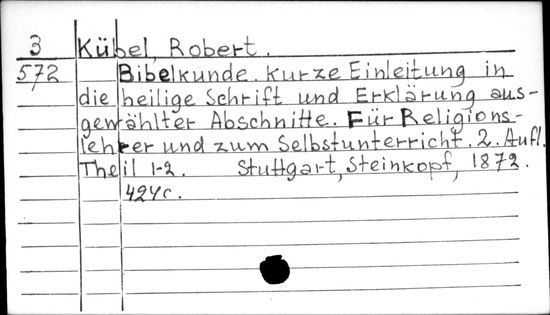 3 Kübel, Robert.
572 Bibelkunde. Kurze Einleitung in
die heilige Schrift und Erklärung aus-
gewählter Abschnitte. Für Religions-
lehrer und zum Selbstunterricht. 2. Aufl.
Theil 1-2. Stuttgart, Steinkopf, 1872.
424c.